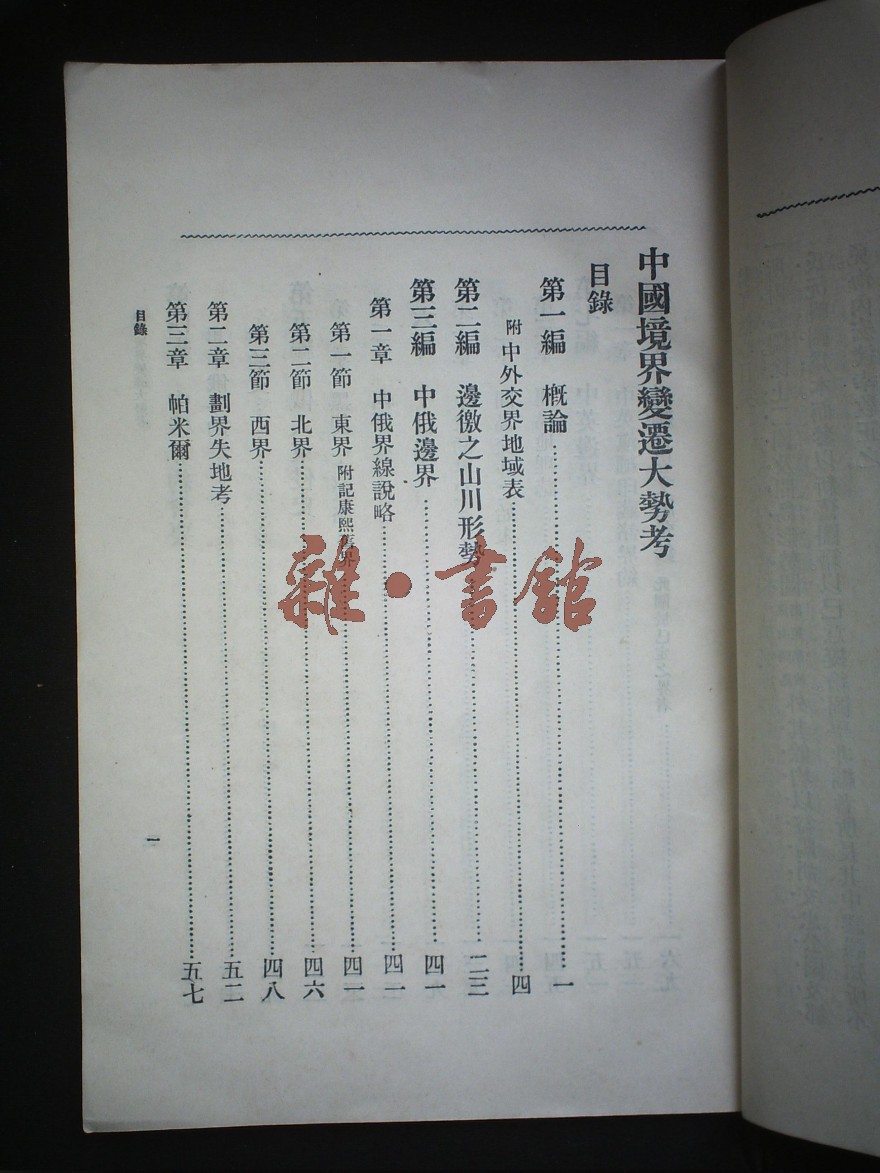 中國境界變遷大勢考
目錄
第一編 槪論……一
附 中外交界地域表……四
第二編 邊徼之山川形勢……二三
第三編 中俄邊界……四一
第一章 中俄界線說略……四一
第一節 東界 附記康熙舊界……四一
第二節 北界……四六
第三節 西界……四八
第二章 劃界失地考……五二
第三章 帕米爾……五七
目錄
一
雜·書館